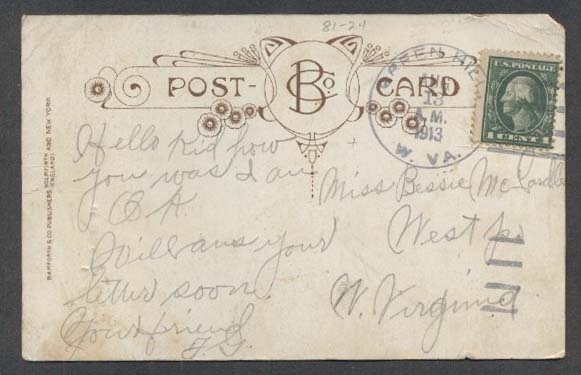 81-24
POST- B Co. CARD
BAMFORTH & CO. PUBLISHERS, HOLMFIRTH AND NEW YORK
(ENGLAND)
GREEN HILL
AUG
13
A.M.
1913
W. VA.
U.S. POSTAGE
1 CENT 1
Hello kid how
you was I am
O A
Will ans your
letter soon.
Your friend
F G.
Miss Bessie McCardle
West
W. Virginia